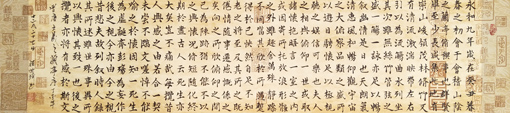 永和九年歲在癸丑暮
春之初會于會稽山陰
之蘭亭脩禊事也群賢
畢至少長咸集此地有
崇山峻領茂林脩竹又
有清流激湍暎帶左右
引以為流觴曲水列坐
其次雖無絲竹管弦之
盛一觴一詠亦足以暢
敘幽情是日也天朗氣
清惠風和暢仰觀宇宙
之大俯察品類之盛所
以遊目騁懷足以極視
聽之娛信可樂也夫人
之相與俯仰一世或取
諸懷抱悟言一室之內
或因寄所託放浪形骸
之外雖趣舍萬殊靜躁
不同當其欣於所遇暫
得於己快然自足不知
老之將至及其所之既
惓情隨事遷感慨係之
矣向之所欣俯仰之間
已為陳跡猶不能不以
之興懷況脩短隨化終
期於盡古人云死生亦
大矣豈不痛哉每攬昔
人興感之由若合一契
未嘗不臨文嗟悼不能
喻之於懷固知一死生
為虛誕齊彭殤為妄作
後之視今亦由今之視
昔悲夫故列敘時人錄
其所述雖世殊事異所
以興懷其致一也後之
攬者亦將有感於斯文